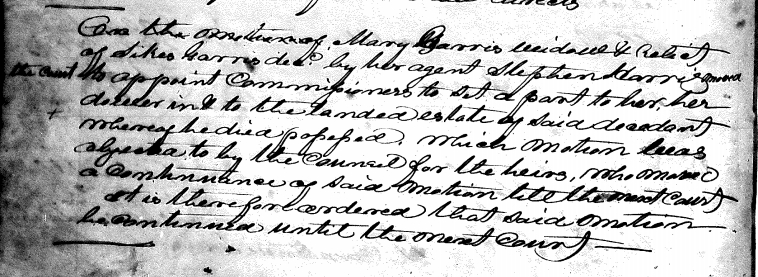 On the motion of Mary Harris widow & Relict
of Sikes Harris decd. by her agent Stephen Harris moved
the Court to appoint Commissioners to set a part to her, her
dower in & to the landed estate of said decedant
whereof he died possessed. Which motion was
objected to by the Counsel for the heirs, who moved
a continuance of said motion till the next Court
It is therefore ordered that said motion
be continued until the next Court